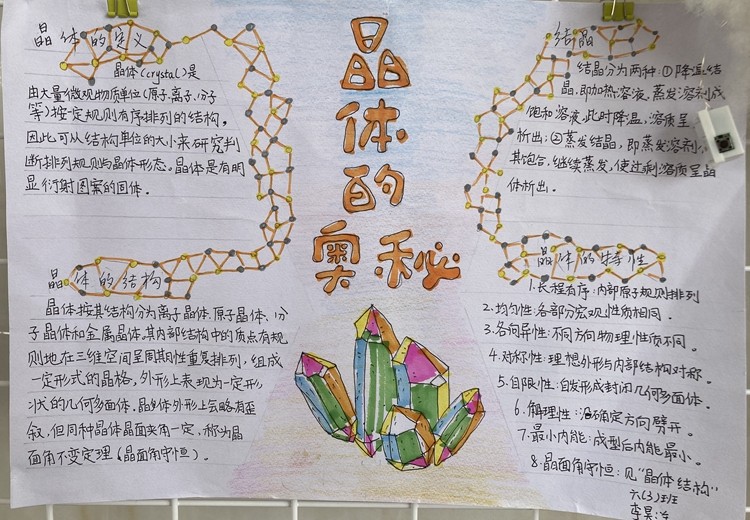 晶体的奥秘
晶体的定义
晶体(crystal)是
由大量微观物质单位(原子、离子、分子
等)按定规则有序排列的结构。
因此可从结构单位的大小来研究判
断排列规则与晶体形态。晶体是有明
显衍射图案的固体。
晶体的结构
晶体按其结构分为离子晶体、原子晶体、分
子晶体和金属晶体。其内部结构中的质点有规
则地在三维空间呈周期性重复排列，组成
一定形式的晶格，外形上表现为一定形
状的几何多面体。晶体外形上会略有歪
斜，但同种晶体晶面夹角一定，称为晶
面角不变定理(晶面角守恒)。
结晶
结晶分为两种：①降温结
晶，即加热溶液，蒸发溶剂成
饱和溶液，此时降温，溶质呈
析出；②蒸发结晶，即蒸发溶剂，
其饱合，继续蒸发，使过剩溶质呈晶
体析出。
晶体的特性
1.长程有序：内部原子规则排列
2.均匀性：各部分宏观性质相同。
3.各向异性：不同方向物理性质不同。
4.对称性：理想外形与内部结构对称。
5.自限性：自发形成封闭几何多面体。
6.解理性：沿确定方向劈开。
7.最小内能：成型后内能最小。
8.晶面角守恒：见"晶体结构"
六(3)班
李昊